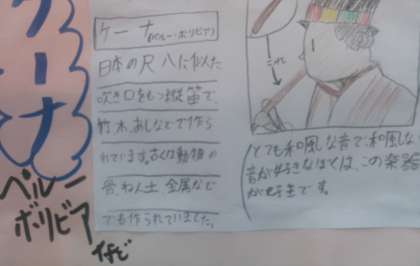 ケーナ
ペルー
ボリビア
など
ケーナ(ペルー・ボリビア)
日本の尺八に似た
吹き口をもつ縦笛で、
竹、木、あしなどで作ら
れています。古くは動物の
骨、ねん土、金属など
でも作られていました。
これ
とても和風な音で、和風な
音が好きなぼくは、この楽器
が好きです。